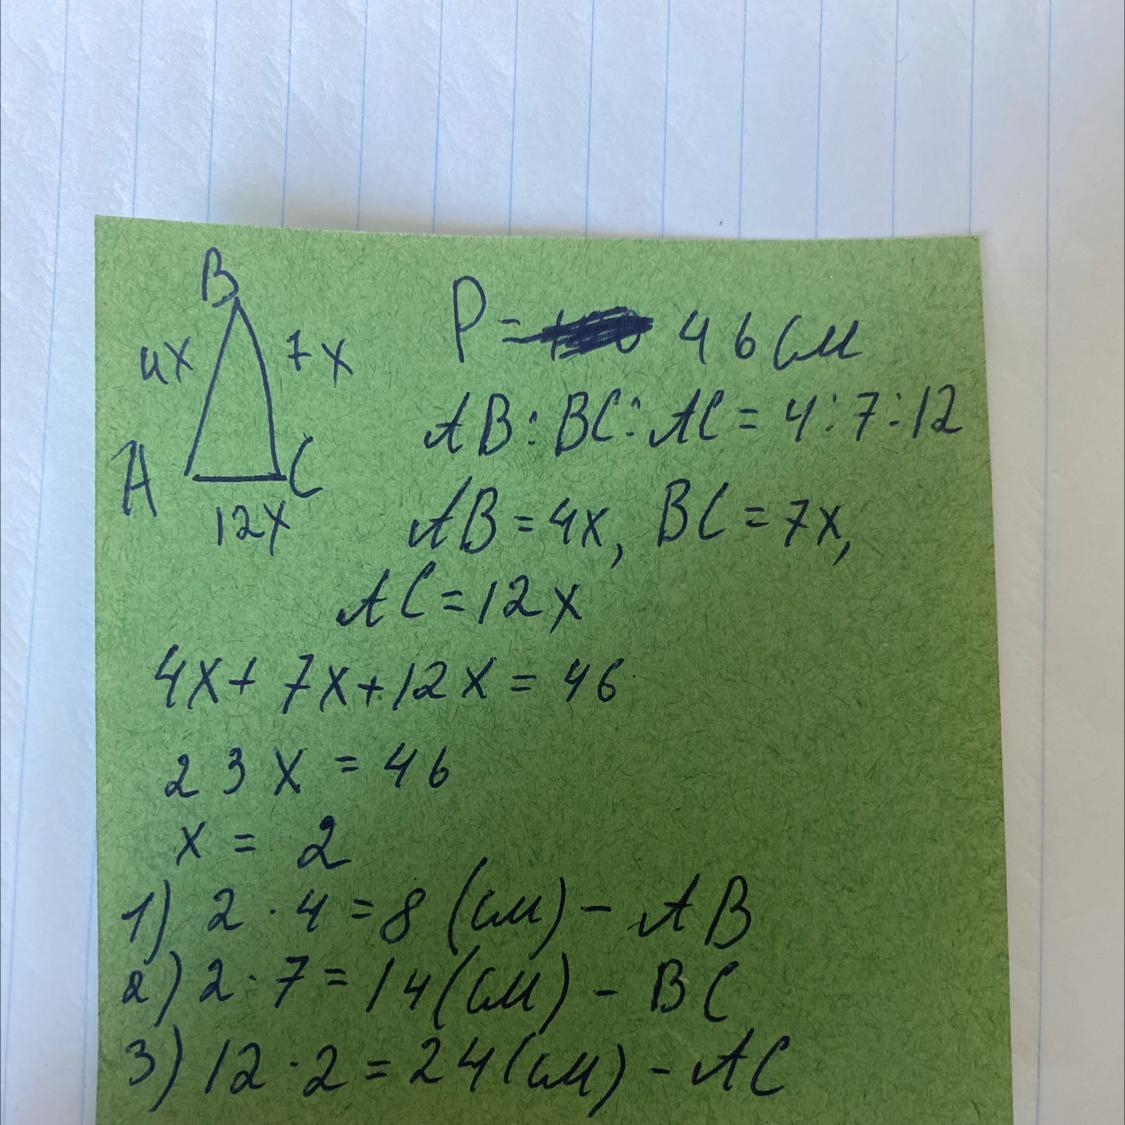 B
4x 7x
A C
12x
P = 46 см
AB : BC : AC = 4 : 7 : 12
AB = 4x, BC = 7x,
AC = 12x
4x + 7x + 12x = 46
23x = 46
x = 2
1) 2 · 4 = 8 (см) – AB
2) 2 · 7 = 14 (см) – BC
3) 12 · 2 = 24 (см) – AC